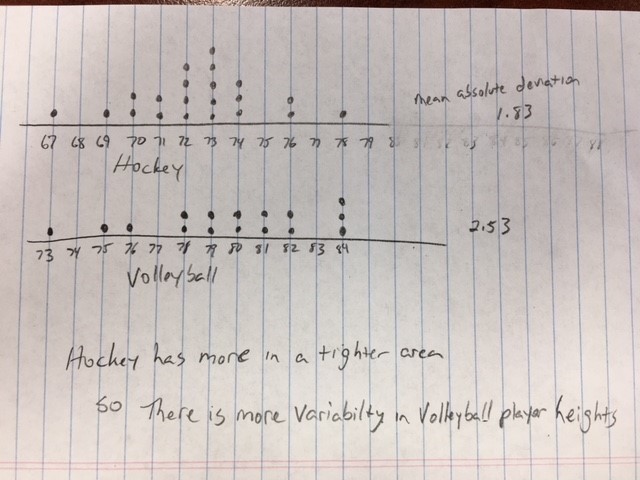 mean absolute deviation
1.83
67 68 69 70 71 72 73 74 75 76 77 78 79
Hockey
2.53
73 74 75 76 77 78 79 80 81 82 83 84
Volleyball
Hockey has more in a tighter area
so There is more Variabilty in Volleyball player heights